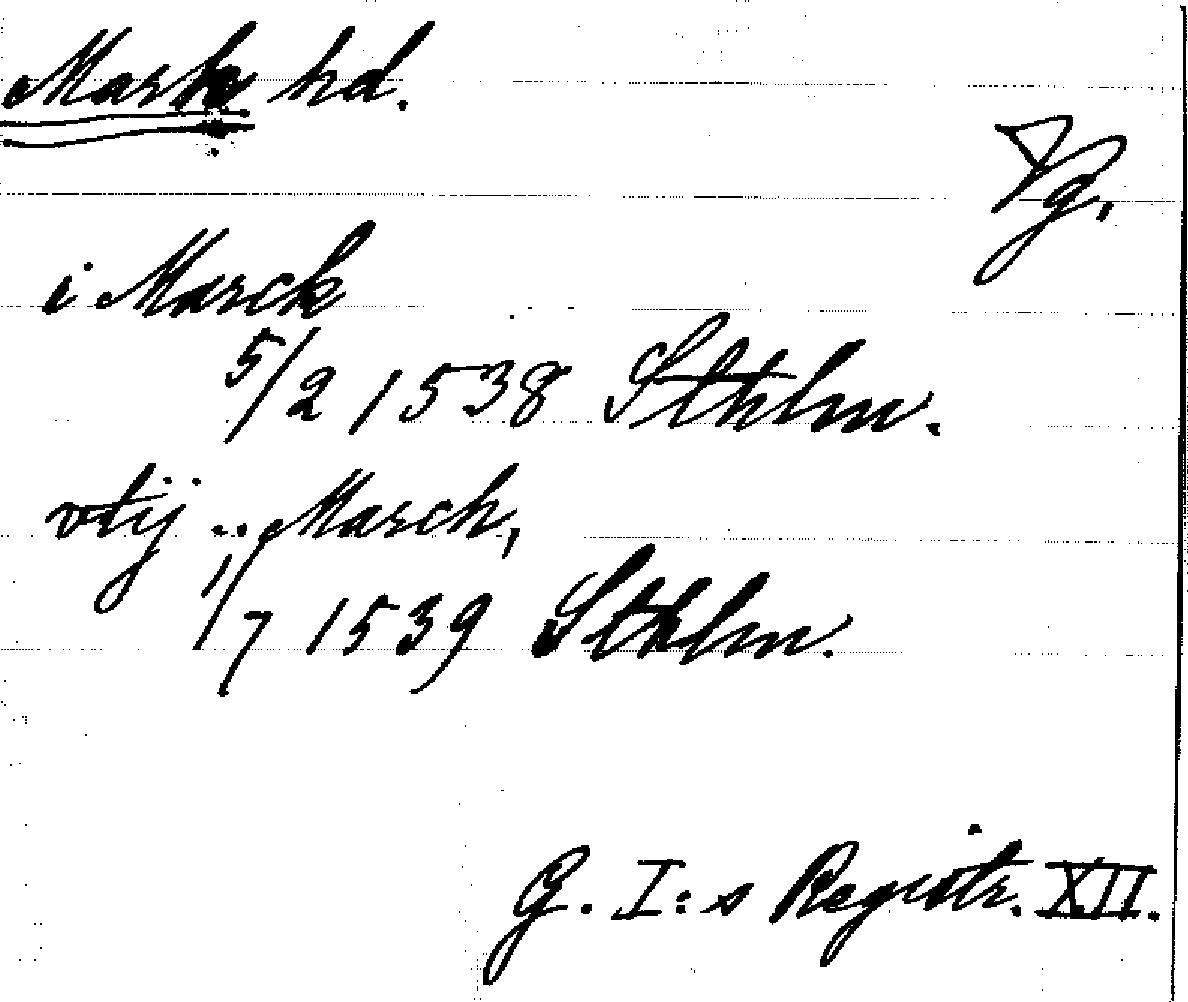 Marks hd.
Vg.
i Marck
5/2 1538 Sthlm.
vtij .. March,
1/7 1539 Sthlm.
G. I:s Registr. XII.